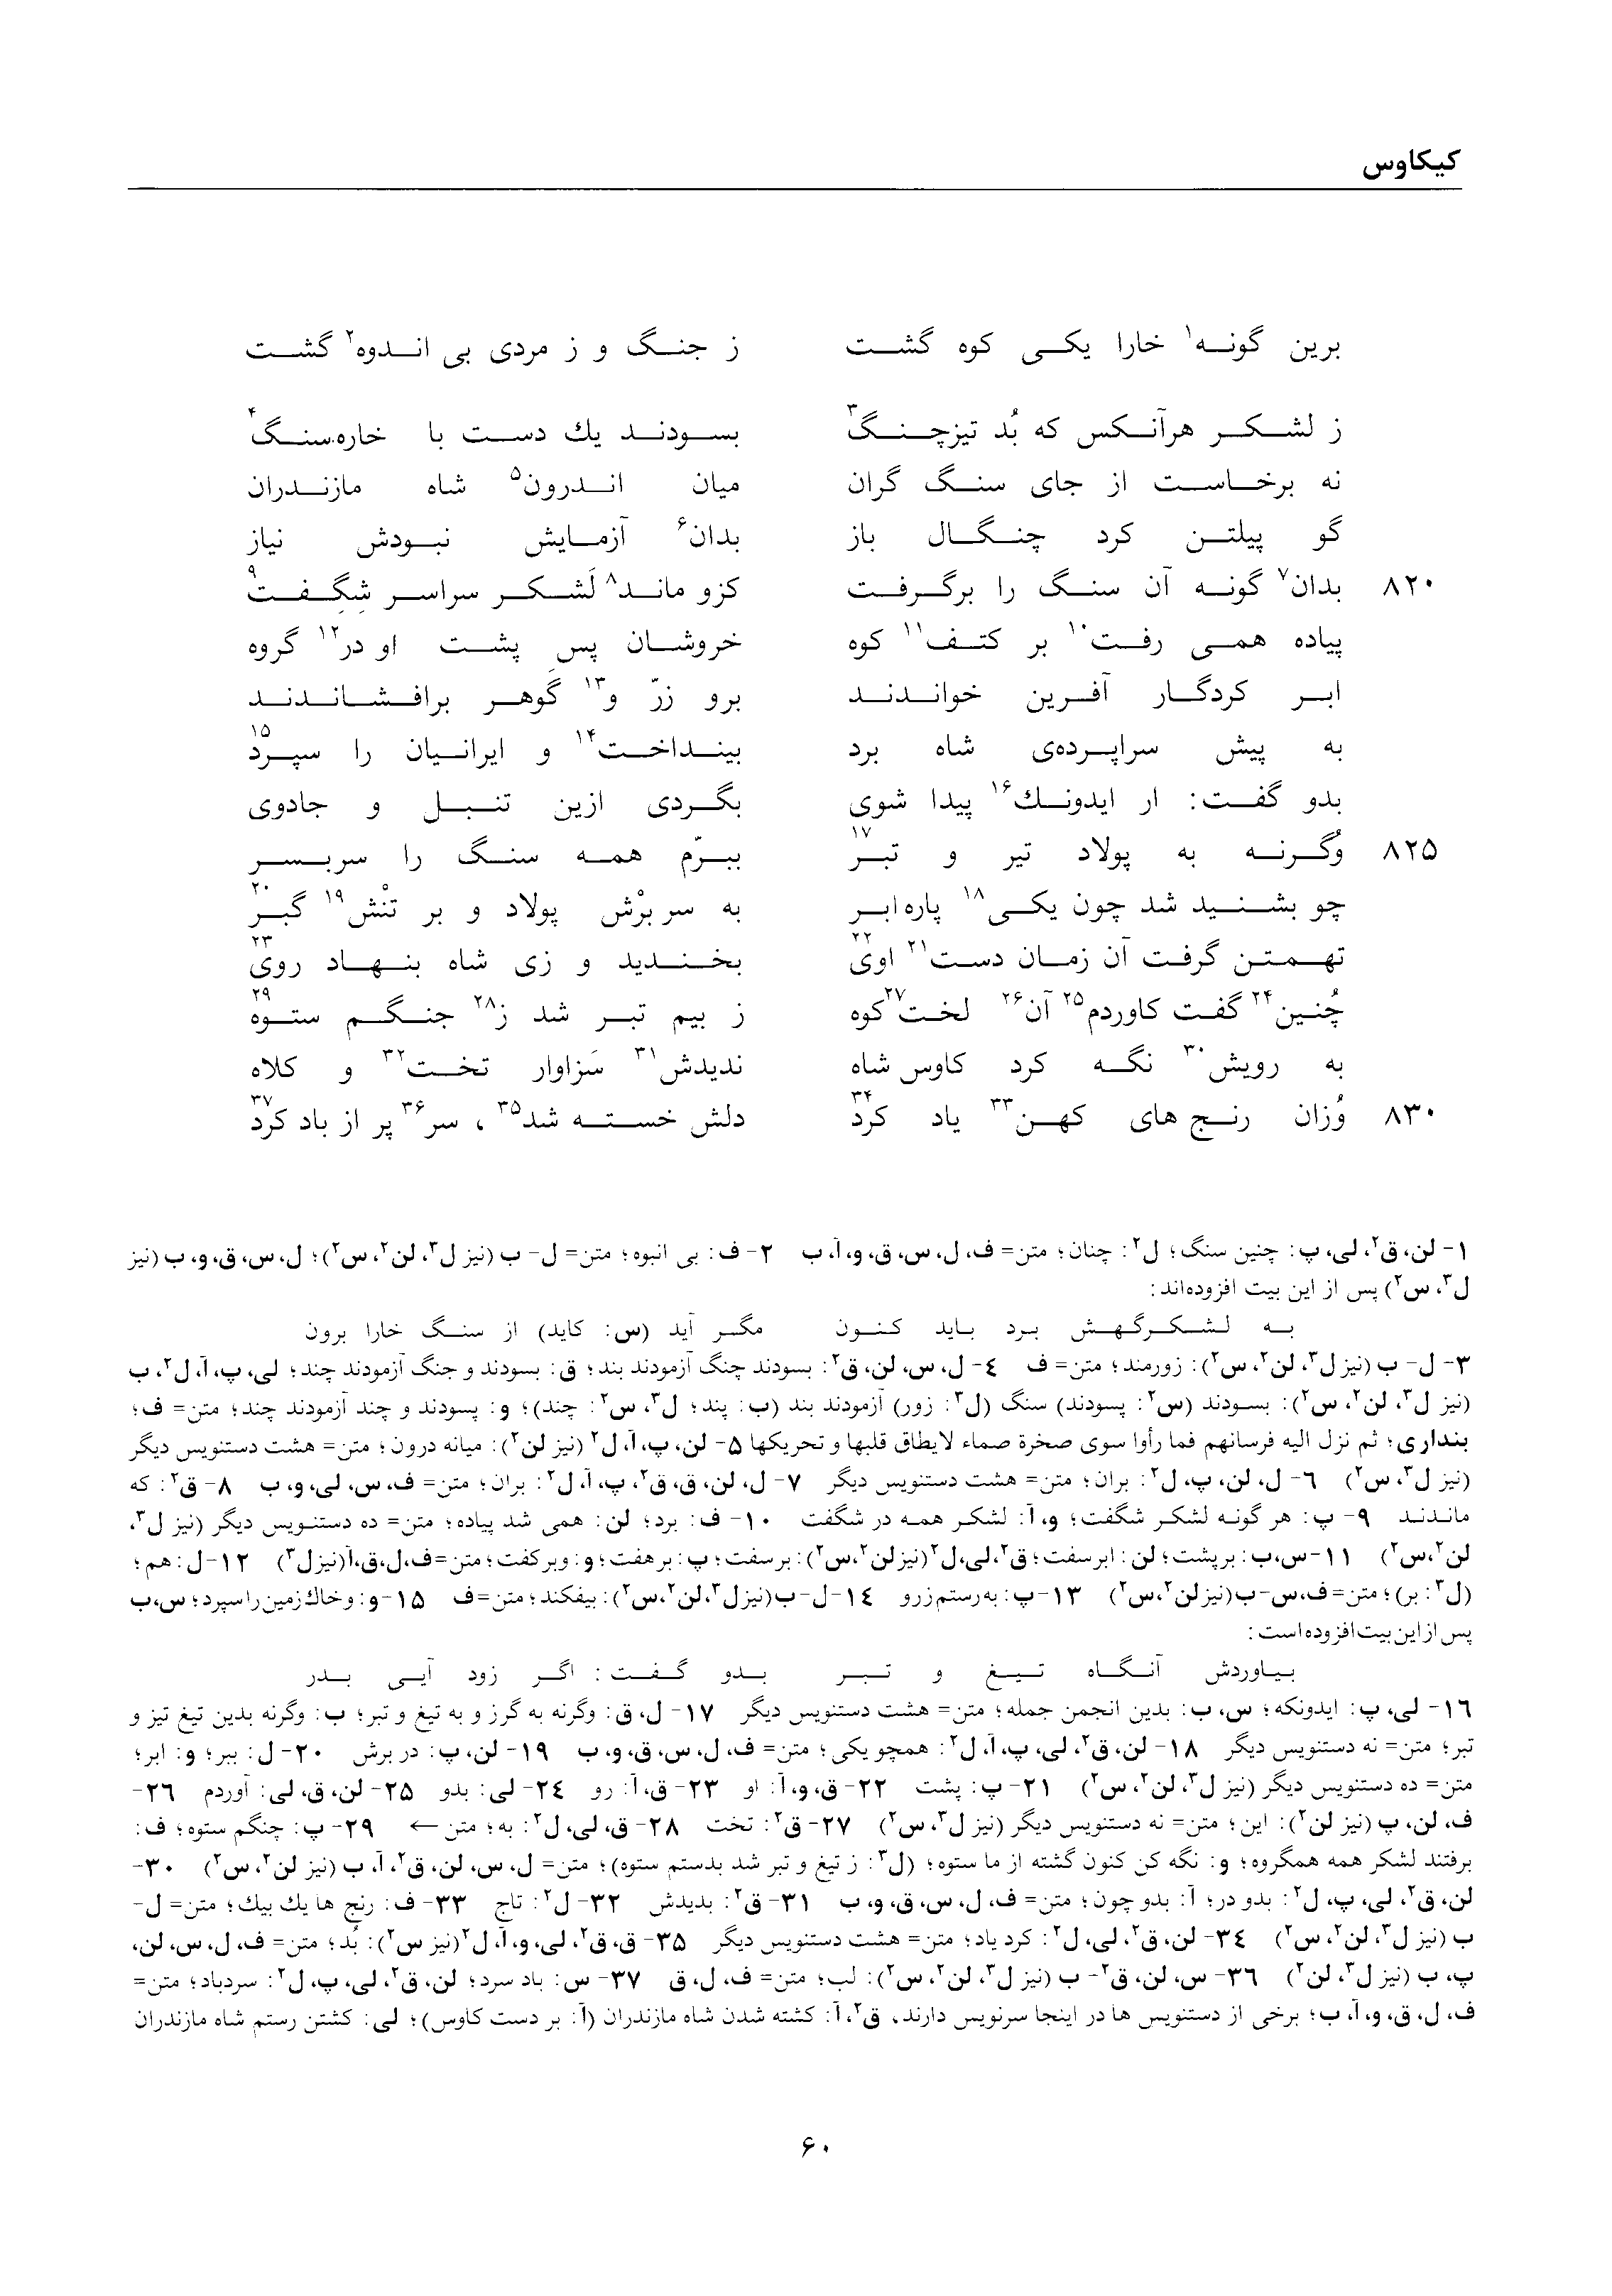 کیکاوس
برین گونه۱ خارا یکی کوه گشت ز جنگ و ز مردی بی اندوه۲ گشت
ز لشکر هرآنکس که بُد تیزچنگ۳ بسودند یك دست با خاره‌سنگ۴
نه برخاست از جای سنگ گران میان اندرون۵ شاه مازندران
گو پیلتن کرد چنگال باز بدان۶ آزمایش نبودش نیاز
۸۲۰ بدان۷ گونه آن سنگ را برگرفت کزو ماند۸ لَشکر سراسر شِگِفت۹
پیاده همی رفت۱۰ بر کتف۱۱ کوه خروشان پسِ پشت او در۱۲ گروه
ابر کردگار آفرین خواندند برو زرّ و۱۳ گوهر برافشاندند
به پیش سراپرده‌ی شاه برد بینداخت۱۴ و ایرانیان را سپرد۱۵
بدو گفت: ار ایدونك۱۶ پیدا شوی بگردی ازین تنبل و جادوی
۸۲۵ وُگرنه به پولاد تیر و تبر۱۷ ببرّم همه سنگ را سربسر
چو بشنید شد چون یکی۱۸ پاره ابر به سر برْش پولاد و بر تنْش۱۹ گبر۲۰
تهمتن گرفت آن زمان دست۲۱ اوی۲۲ بخندید و زی شاه بنهاد روی۲۳
چُنین۲۴ گفت کاوردم۲۵ آن۲۶ لخت۲۷ کوه ز بیم تبر شد ز۲۸ جنگم ستوه۲۹
به رویش۳۰ نگه کرد کاوس شاه ندیدش۳۱ سَزاوار تخت۳۲ و کلاه
۸۳۰ وُزان رنج های کهن۳۳ یاد کرد۳۴ دلش خسته شد۳۵، سر۳۶ پر از باد کرد۳۷
۱- لن، ق۲، لی، پ: چنین سنگ؛ ل۲: چنان؛ متن= ف، ل، س، ق، و، آ، ب ۲- ف: بی انبوه؛ متن= ل- ب (نیز ل۳، لن۲، س۲)؛ ل، س، ق، و، ب (نیز
ل۳، س۲) پس از این بیت افزوده‌اند:
به لشکرگهش برد باید کنون مگر آید (س: کاید) از سنگ خارا برون
۳- ل- ب (نیز ل۳، لن۲، س۲): زورمند؛ متن= ف ٤- ل، س، لن، ق۲: بسودند چنگ آزمودند بند؛ ق: بسودند و جنگ آزمودند چند؛ لی، پ، آ، ل۲، ب
(نیز ل۳، لن۲، س۲): بسودند (س۲: پسودند) سنگ (ل۳: زور) آزمودند بند (ب: پند؛ ل۳، س۲: چند)؛ و: پسودند و چند آزمودند چند؛ متن= ف؛
بنداری؛ ثم نزل الیه فرسانهم فما رأوا سوی صخرة صماء لایطاق قلبها و تحریکها ۵- لن، پ، آ، ل۲ (نیز لن۲): میانه درون؛ متن= هشت دستنویس دیگر
(نیز ل۳، س۲) ٦- ل، لن، پ، ل۲: بران؛ متن= هشت دستنویس دیگر ۷- ل، لن، ق، ق۲، پ، آ، ل۲: بران؛ متن= ف، س، لی، و، ب ۸- ق۲: که
ماندند ۹- پ: هر گونه لشکر شگفت؛ و، آ: لشکر همه در شگفت ۱۰- ف: برد؛ لن: همی شد پیاده؛ متن= ده دستنویس دیگر (نیز ل۳،
لن۲، س۲) ۱۱- س، ب: برپشت؛ لن: ابرسفت؛ ق۲، لی، ل۲ (نیز لن۲، س۲): برسفت؛ پ: برهفت؛ و: وبرکفت؛ متن= ف، ل، ق، آ (نیز ل۳) ۱۲- ل: هم؛
(ل۳: بر)؛ متن= ف، س- ب (نیز لن۲، س۲) ۱۳- پ: به رستم زرو ۱٤- ل- ب (نیز ل۳، لن۲، س۲): بیفکند؛ متن= ف ۱۵- و: و خاك زمین را سپرد؛ س، ب
پس از این بیت افزوده است:
بیاوردش آنگاه تیغ و تبر بدو گفت: اگر زود آیی بدر
۱٦- لی، پ: ایدونکه؛ س، ب: بدین انجمن جمله؛ متن= هشت دستنویس دیگر ۱۷- ل، ق: وگرنه به گرز و به تیغ و تبر؛ ب: وگرنه بدین تیغ تیز و
تبر؛ متن= نه دستنویس دیگر ۱۸- لن، ق۲، لی، پ، آ، ل۲: همچو یکی؛ متن= ف، ل، س، ق، و، ب ۱۹- لن، پ: در برش ۲۰- ل: ببر؛ و: ابر؛
متن= ده دستنویس دیگر (نیز ل۳، لن۲، س۲) ۲۱- پ: پشت ۲۲- ق، و، آ: او ۲۳- ق، آ: رو ۲٤- لی: بدو ۲۵- لن، ق، لی: آوردم ۲٦-
ف، لن، پ (نیز لن۲): این؛ متن= نه دستنویس دیگر (نیز ل۳، س۲) ۲۷- ق۲: تخت ۲۸- ق، لی، ل۲: به؛ متن ← ۲۹- پ: چنگم ستوه؛ ف:
برفتند لشکر همه همگروه؛ و: نگه کن کنون گشته از ما ستوه؛ (ل۳: ز تیغ و تبر شد بدستم ستوه)؛ متن= ل، س، لن، ق۲، آ، ب (نیز لن۲، س۲) ۳۰-
لن، ق۲، لی، پ، ل۲: بدو در؛ آ: بدو چون؛ متن= ف، ل، س، ق، و، ب ۳۱- ق۲: بدیدش ۳۲- ل۲: تاج ۳۳- ف: رنج ها یك بیك؛ متن= ل-
ب (نیز ل۳، لن۲، س۲) ۳٤- لن، ق۲، لی، ل۲: کرد یاد؛ متن= هشت دستنویس دیگر ۳۵- ق، ق۲، لی، و، آ، ل۲ (نیز س۲): بُد؛ متن= ف، ل، س، لن،
پ، ب (نیز ل۳، لن۲) ۳٦- س، لن، ق۲- ب (نیز ل۳، لن۲، س۲): لب؛ متن= ف، ل، ق ۳۷- س: باد سرد؛ لن، ق۲، لی، پ، ل۲: سردباد؛ متن=
ف، ل، ق، و، آ، ب؛ برخی از دستنویس ها در اینجا سرنویس دارند، ق۲، آ: کشته شدن شاه مازندران (آ: بر دست کاوس)؛ لی: کشتن رستم شاه مازندران
۶۰